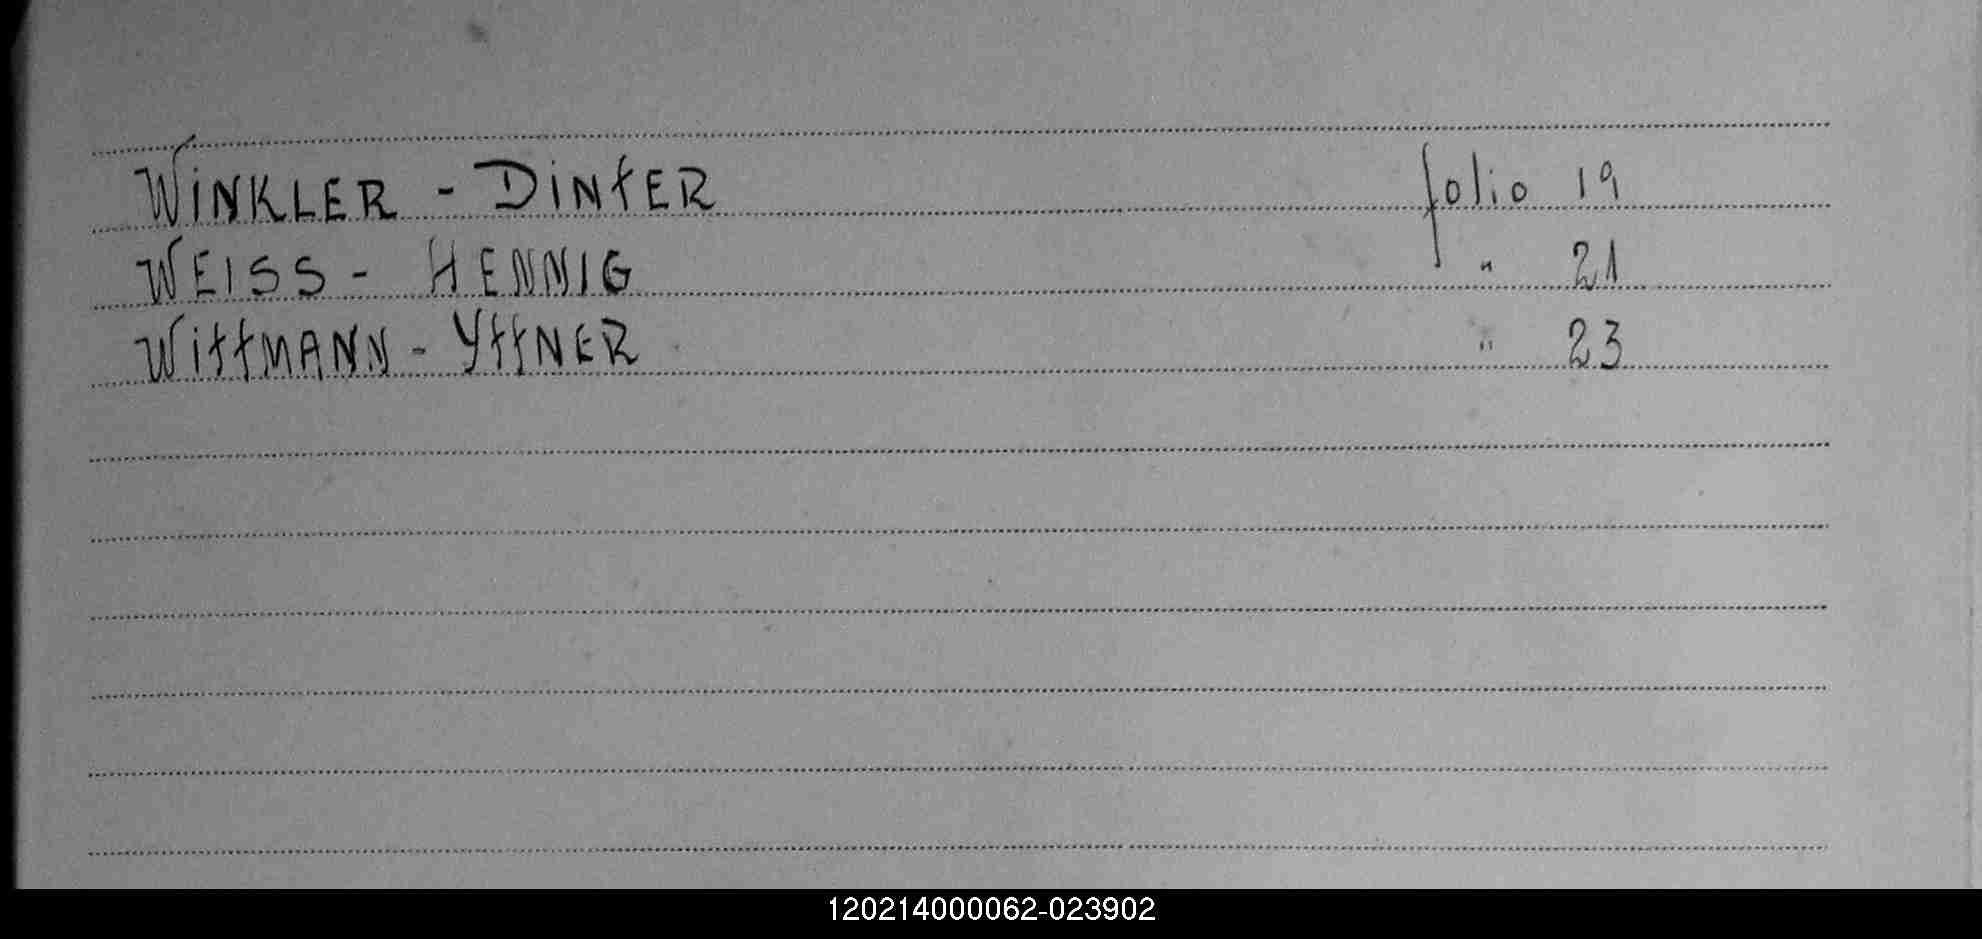 WiNKLER - DiNtER folio 19
WEISS - HENNIG " 21
WittMANN - YttNER " 23
120214000062-023902